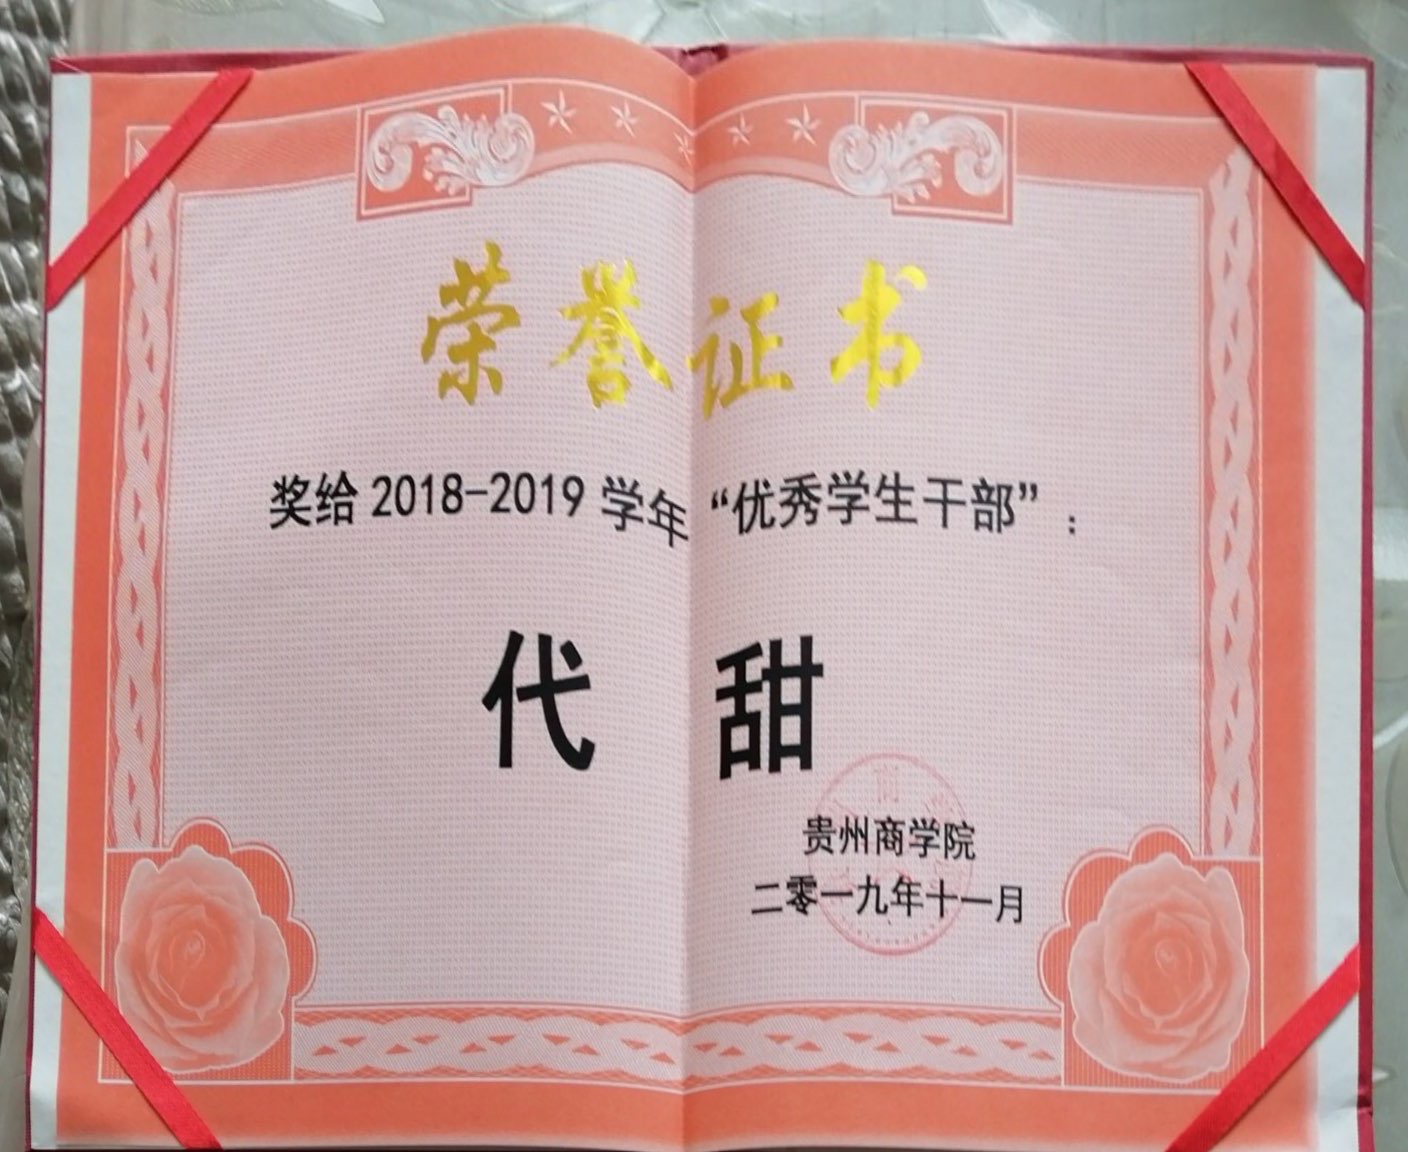 荣誉证书
奖给2018-2019学年“优秀学生干部”：
代 甜
贵州商学院
二零一九年十一月